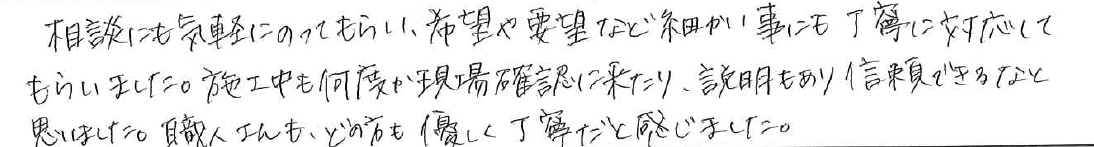 相談にも気軽にのってもらい、希望や要望など細かい事にも丁寧に対応して
もらいました。施工中も何度か現場確認に来たり、説明もあり信頼できるなと
思いました。職人さんも、どの方も優しく丁寧だと感じました。